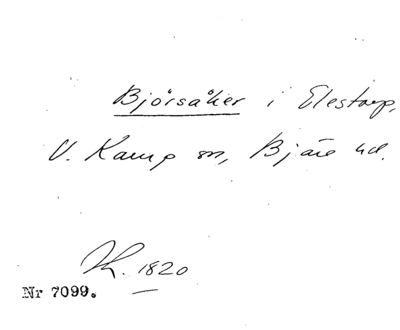 Björsåker i Elestorp,
V. Karup sn, Bjäre hd.
1820
Nr 7099.